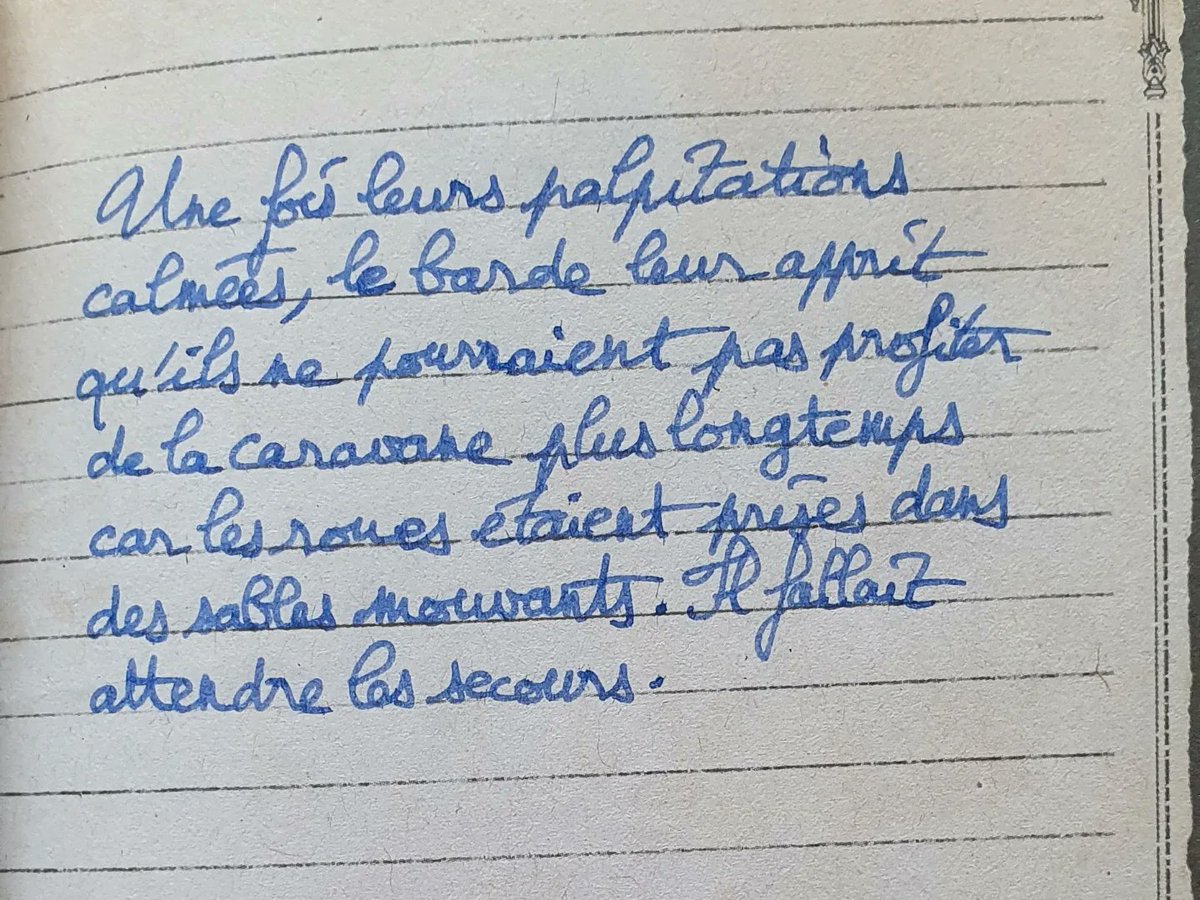 Une fois leurs palpitations
calmées, le barde leur apprit
qu'ils ne pourraient pas profiter
de la caravane plus longtemps
car les roues étaient prises dans
des sables mouvants. Il fallait
attendre les secours.